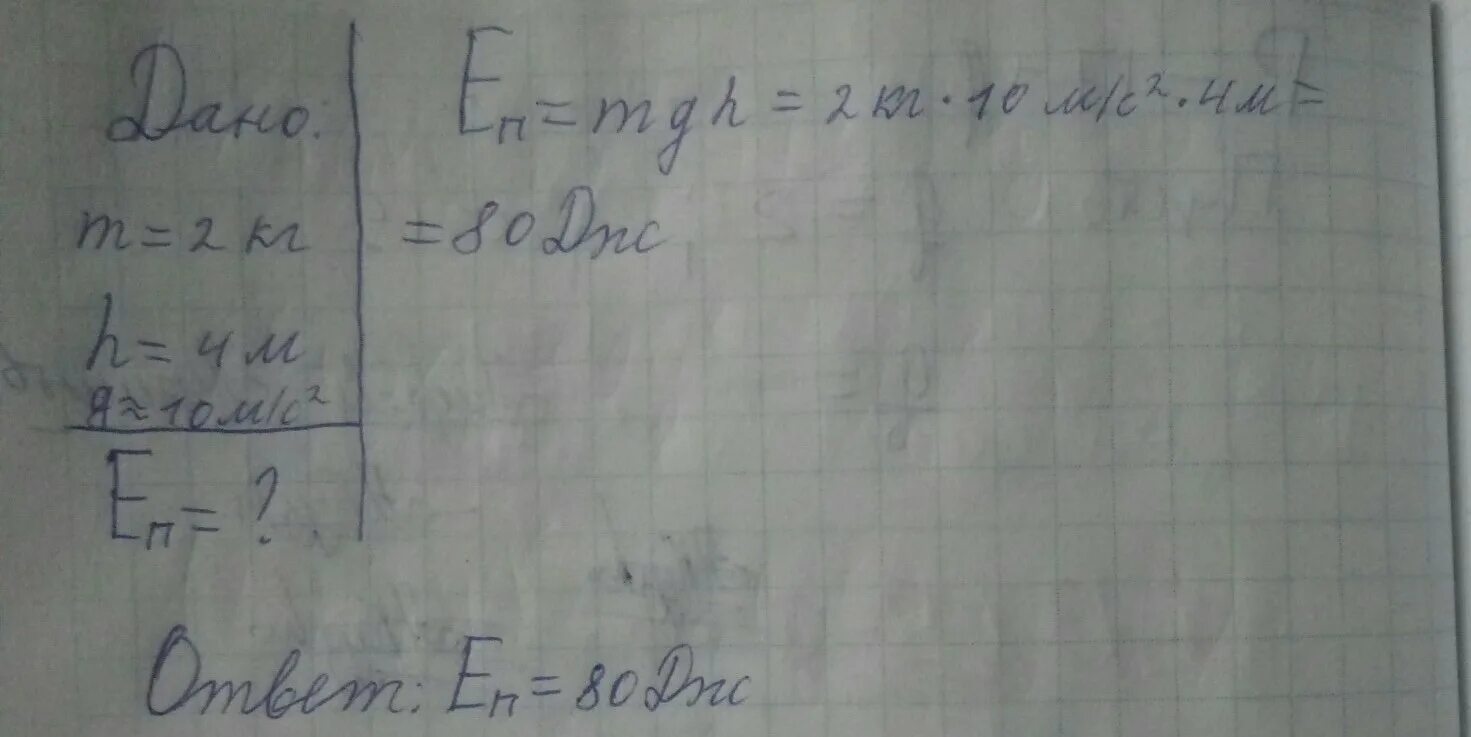 Дано:
m = 2 кг
h = 4 м
g ≈ 10 м/с²
Eп = ?
Eп = mgh = 2 кг · 10 м/с² · 4 м =
= 80 Дж
Ответ: Eп = 80 Дж